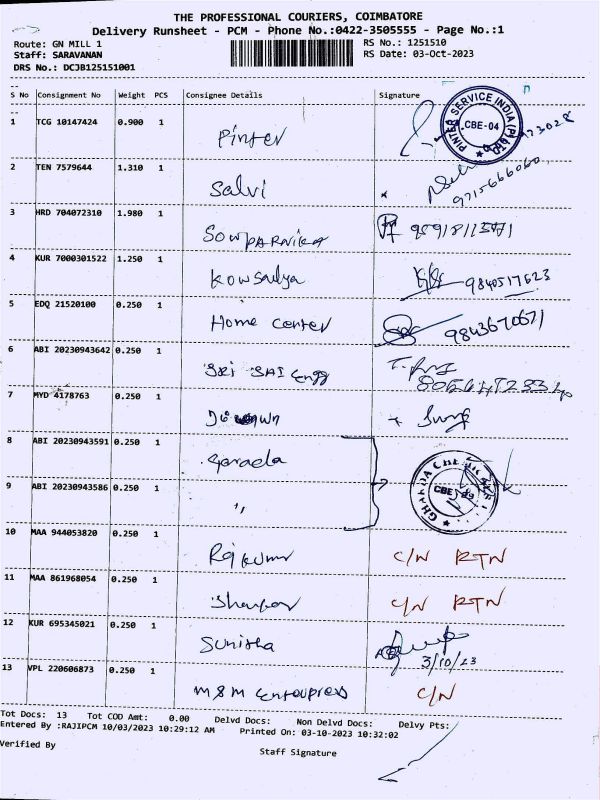 THE PROFESSIONAL COURIERS, COIMBATORE
Delivery Runsheet - PCM - Phone No.:0422-3505555 - Page No.:1
Route: GN MILL 1 RS No.: 1251510
Staff: SARAVANAN RS Date: 03-Oct-2023
DRS No.: DCJB125151001
S No Consignment No Weight PCS Consignee Details Signature
1 TCG 10147424 0.900 1 Pinter
PINTER SERVICE INDIA (P) LTD CBE-04
2 TEN 7579644 1.310 1 Salvi
9715666060
3 HRD 704072310 1.980 1 Sowparnika
4 KUR 7000301522 1.250 1 Kowsalya 9840517623
5 EDQ 21520100 0.250 1 Home center 9843670671
6 ABI 20230943642 0.250 1 Sri SAI Engg
7 MYD 4178763 0.250 1
8 ABI 20230943591 0.250 1
9 ABI 20230943586 0.250 1 ,,
CBE
10 MAA 944053820 0.250 1 Rajkumar C/N RTN
11 MAA 861968054 0.250 1 C/N RTN
12 KUR 695345021 0.250 1 Sunitha
3/10/23
13 VPL 220606873 0.250 1 M&M C/N
Tot Docs: 13 Tot COD Amt: 0.00 Delvd Docs: Non Delvd Docs: Delvy Pts:
Entered By :RAJIPCM 10/03/2023 10:29:12 AM Printed On: 03-10-2023 10:32:02
Verified By Staff Signature